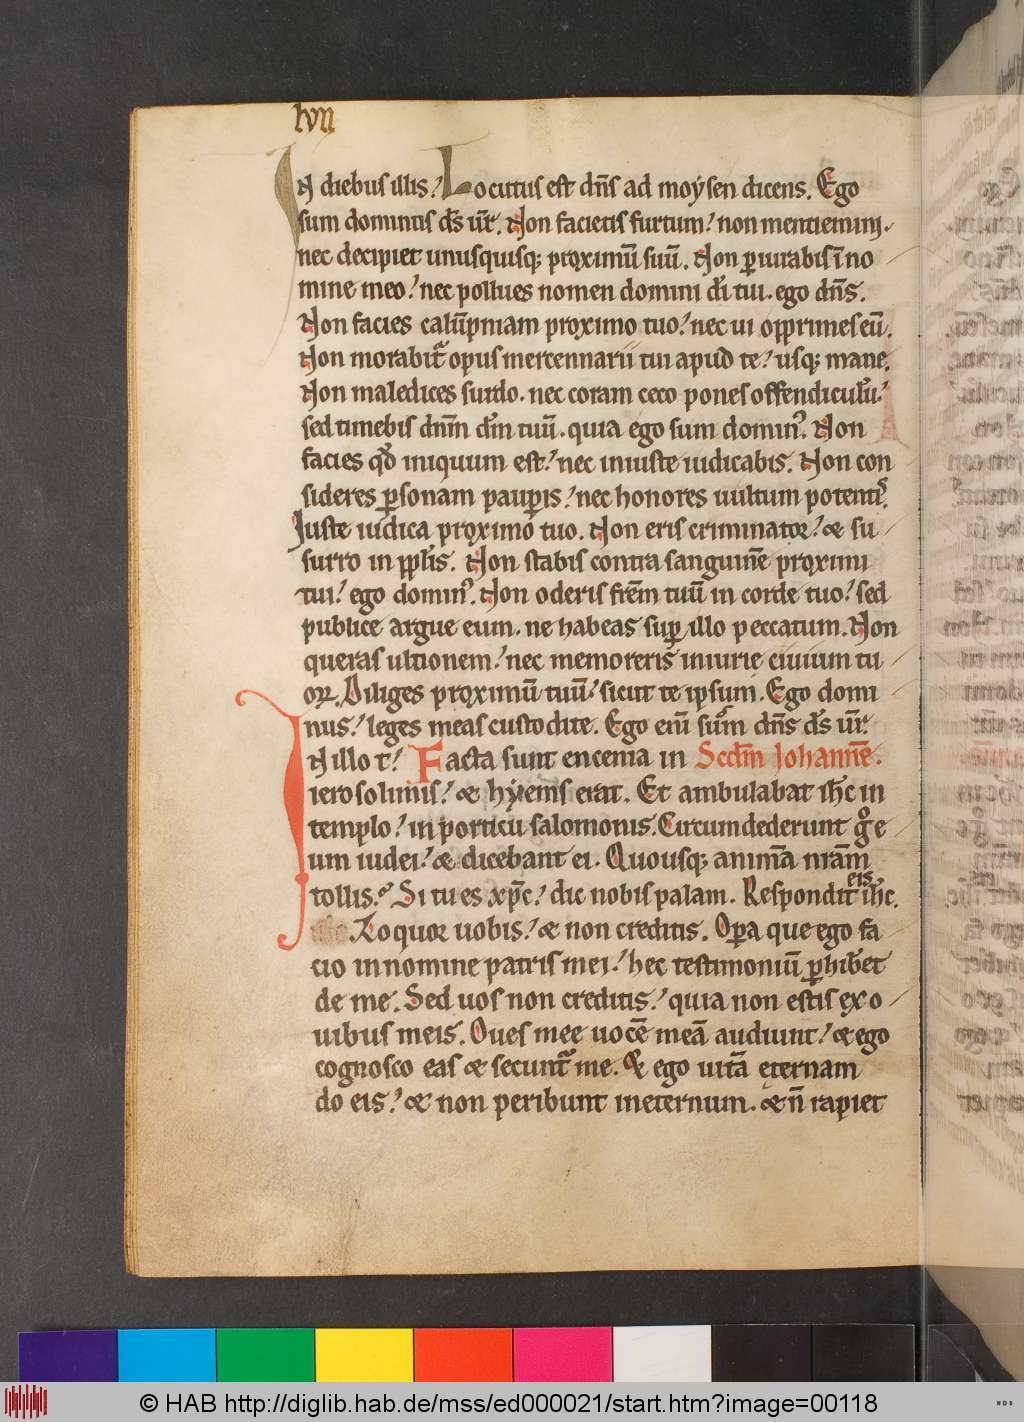 lvii
In diebus illis? Locutus est dn̄s ad moẏsen dicens. Ego
sum dominus ds̄ ur̄. Non facietis furtum? non mentiemini.
nec decipiet unusquisq; proximū suū. Non ꝑiurabis ī no
mine meo? nec pollues nomen domini dī tui. ego dn̄s.
Non facies calūpniam proximo tuo? nec ui opprimes eū.
Non morabit᷑ opus mercennarii tui apud te? usq; mane.
Non maledices surdo. nec coram ceco pones offendiculū?
sed timebis dnm̄ dm̄ tuū. quia ego sum domin᷒. Non
facies qd̄ iniquum est? nec iniuste iudicabis. Non con
sideres ꝑsonam pauꝑis? nec honores uultum potentis.
Iuste iudica proximo tuo. Non eris criminator? & su
surro in ppl̄is. Non stabis contra sanguinē proximi
tui? ego domin᷒. Non oderis frēm tuū in corde tuo? sed
publice argue eum. ne habeas suꝑ illo peccatum. Non
queras ultionem? nec memoreris iniurie ciuium tu
oꝝ. Diliges proximū tuū? sicut te ipsum. Ego domi
nus? leges meas custodite. Ego eni᷑ sum dn̄s ds̄ ur̄.
In illo t? Facta sunt encenia in Scdm̄ Iohannē.
ierosolimis? & hyems erat. Et ambulabat ih̄c in
templo? in porticu salomonis. Circumdederunt g̊ e
um iudei? & dicebant ei. Quousq; animā nrām
tollis? Si tu es xp̄c? dic nobis palam. Respondit eis ih̄c.
Loquor uobis? & non creditis. Oꝑa que ego fa
cio in nomine patris mei? hec testimoniū ꝑhibet
de me. Sed uos non creditis? quia non estis ex o
uibus meis. Oues mee uocē meā audiunt? & ego
cognosco eas & secunt᷑ me. Et ego uitā eternam
do eis? & non peribunt in eternum. & n̄ rapiet
© HAB http://diglib.hab.de/mss/ed000021/start.htm?image=00118